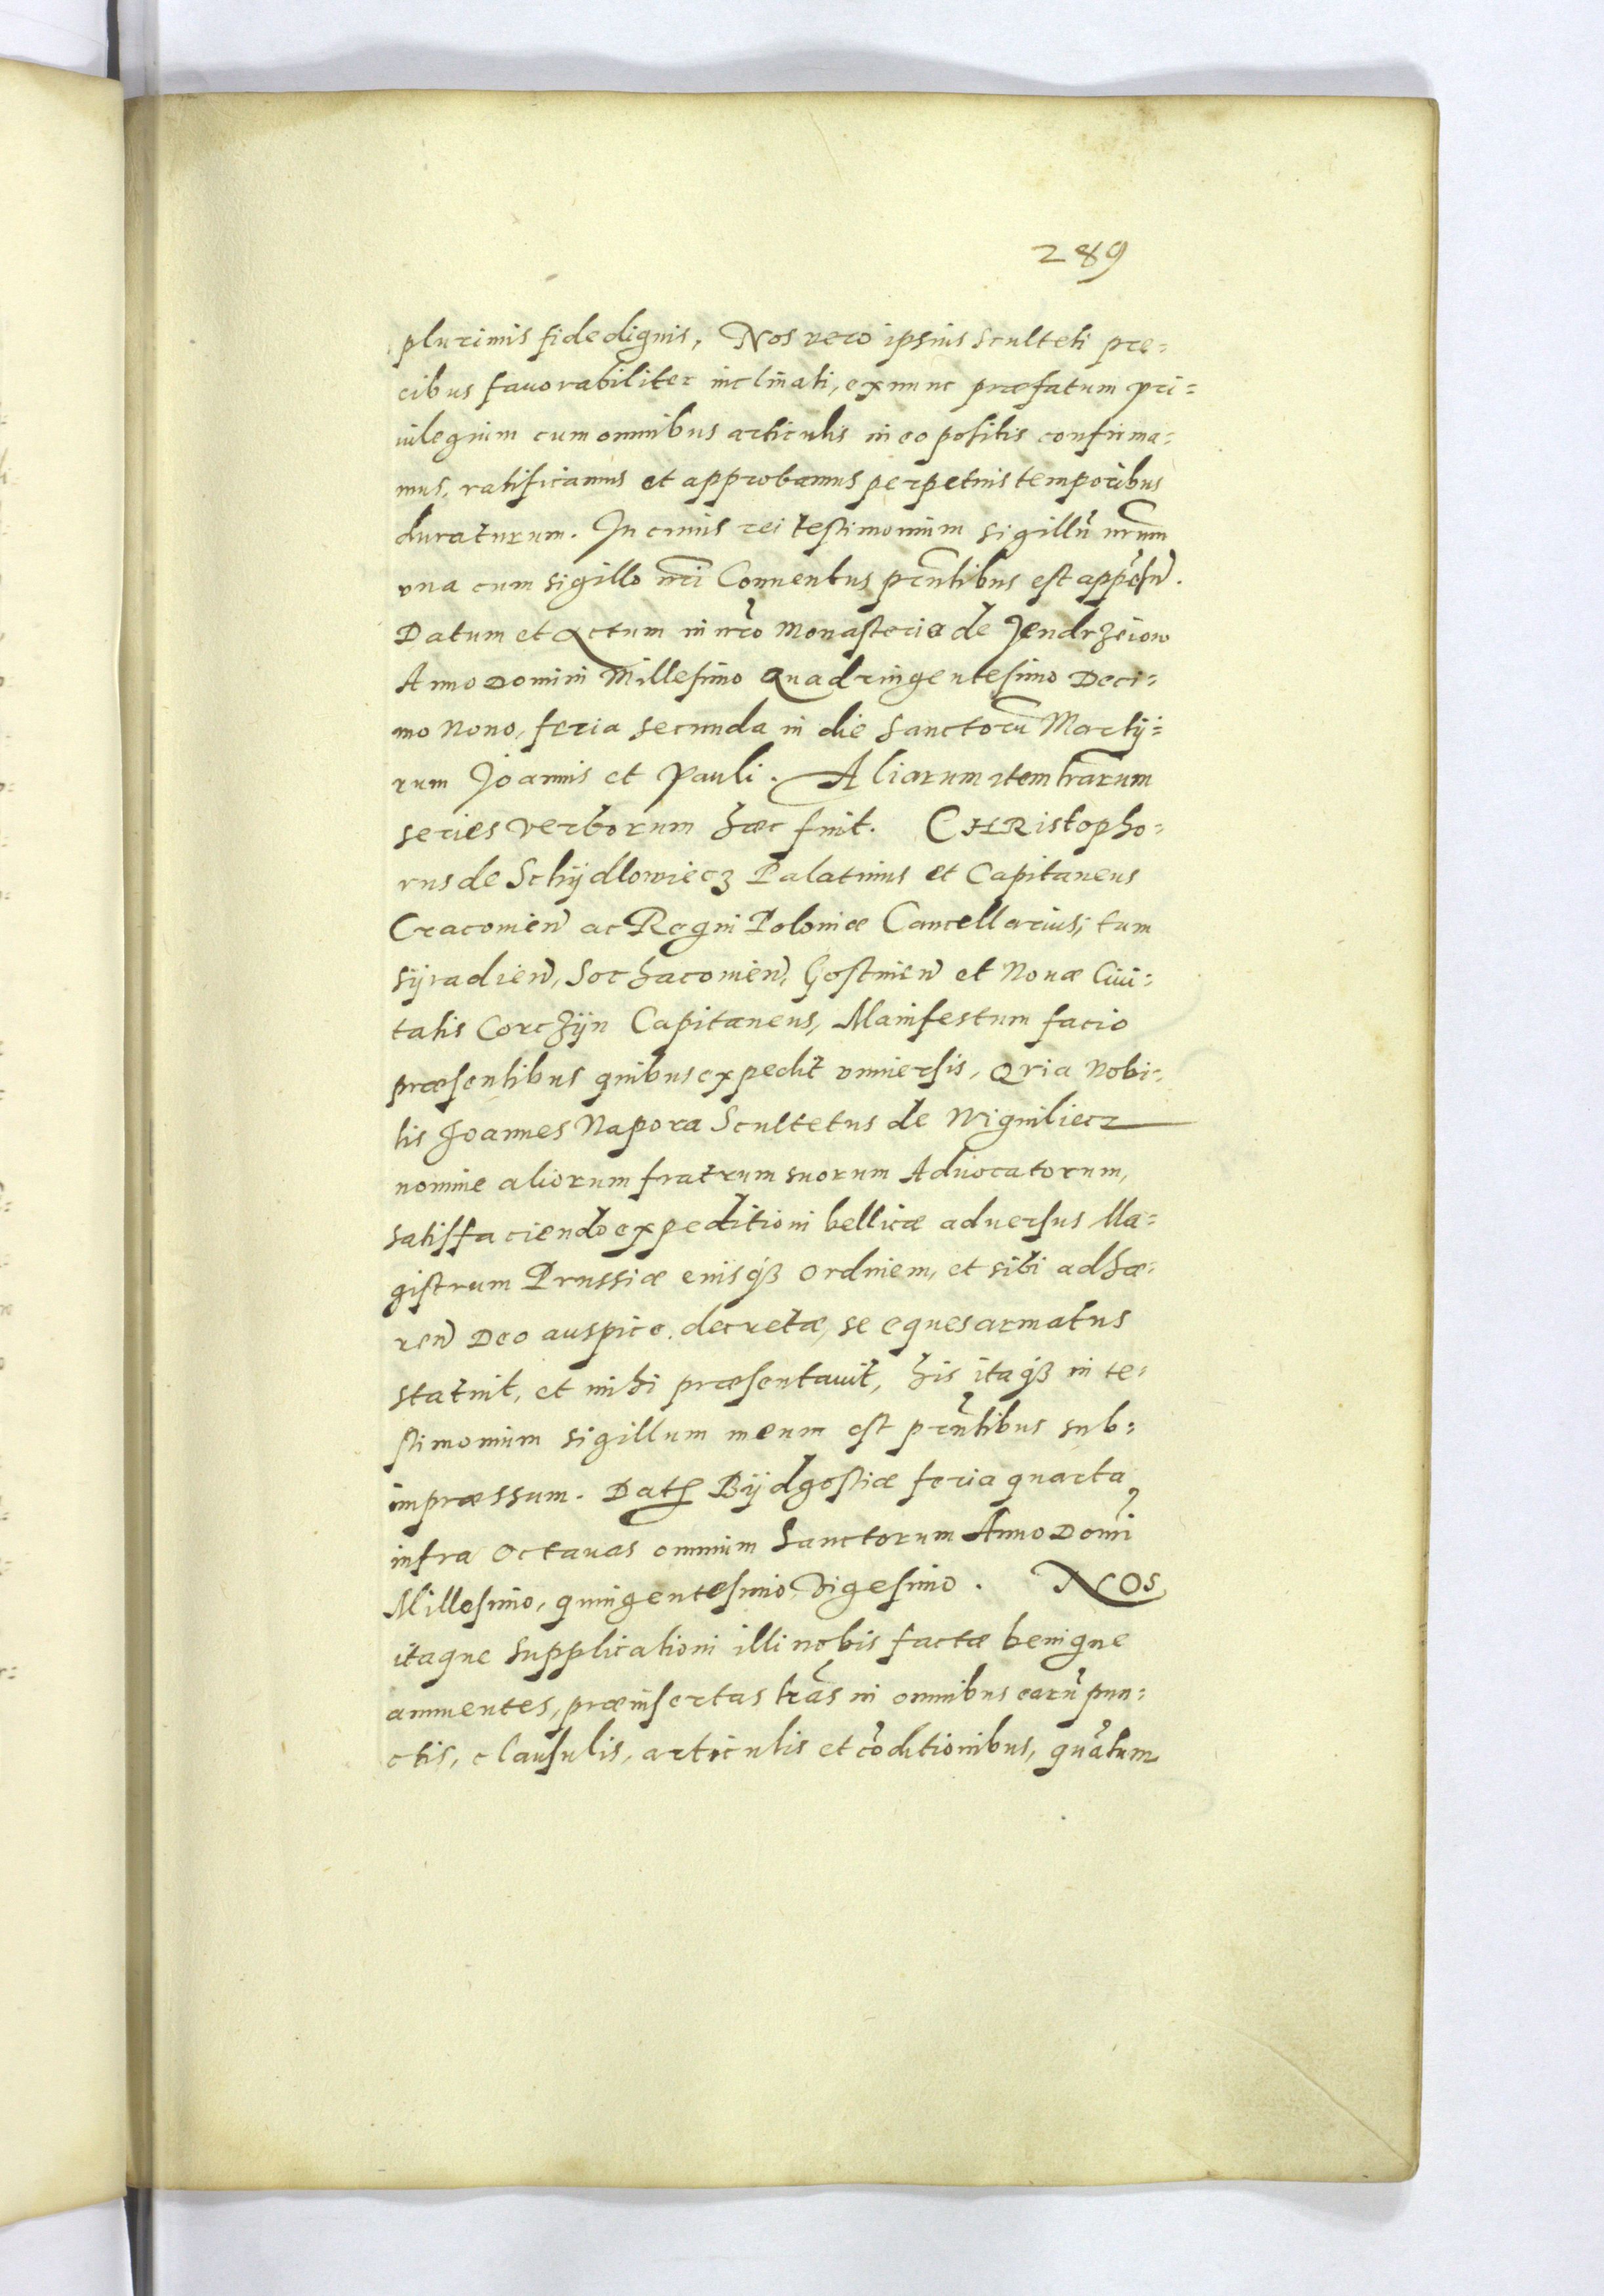 289
plurimis fidedignis, Nos vero ipsius Sculteti pre=
cibus fauorabiliter inclinati, exnunc præfatum pri=
uilegium cum omnibus articulis in eo positis confirma=
mus, ratificamus et approbamus perpetuis temporibus
duraturum. In cuius rei testimonium sigillũ nr̃um
vna cum sigillo nr̃i Conuentus pr̃ntibus est appẽsũ.
Datum et Actum in nr̃o Monasterio de Jendrzeiow
Anno Domini Millesimo Quadringentesimo Deci=
mo Nono, feria secunda in die Sanctorũ Martÿ=
rum Joannis et Pauli. Aliarum item lr̃arum
series verborum hæc fuit. CHRistopho=
rus de Schÿdlowiecz Palatinus et Capitaneus
Cracouieñ ac Regni Poloniæ Cancellarius, tum
Sÿradieñ, Sochacouieñ, Gostinieñ et Nouæ Ciui=
tatis Corczÿn Capitaneus, Manifestum facio
præsentibus quibus expedit vniuersis, Qvia Nobi=
lis Joannes Napora Scultetus de Wigniliecz
nomine aliorum fratrum suorum Aduocatorum,
satisfaciendo expeditioni bellicæ aduersus Ma=
gistrum Prussiæ eiusqȝ Ordinem, et sibi adhæ=
reñ Deo auspice decretæ, se eques armatus
statuit, et mihi præsentauit, his itaqȝ in te=
stimonium sigillum meum est pr̃ntibus sub=
impræssum. Datꝭ Bÿdgostiæ feria quarta
infra Octauas omnium Sanctorum Anno Domĩ
Millesimo, quingentesimo Vigesimo. NOS
itaque supplicationi illi nobis factæ benigne
annuentes, præinsertas lr̃as in omnibus earũ pun=
ctis, clausulis, articulis et cõditionibus, quãtum